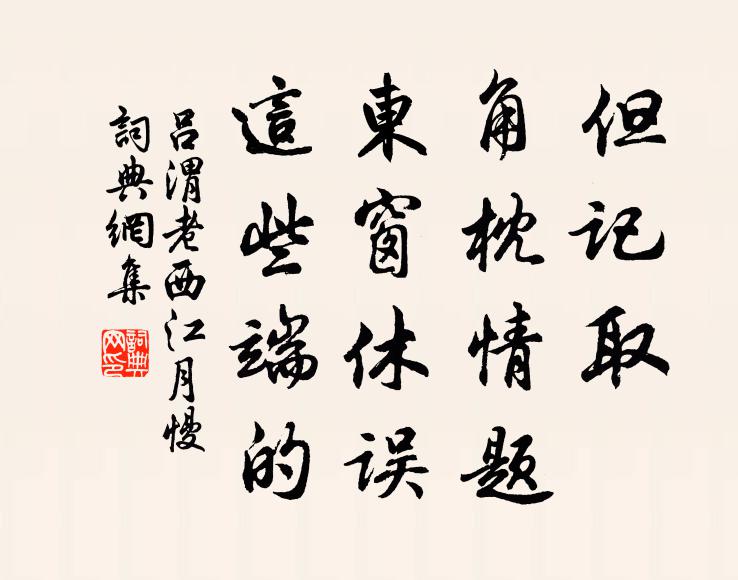 但记取
角枕情题
東窗休误
這些端的
吕渭老西江月慢
詞典網集
詞典
网印